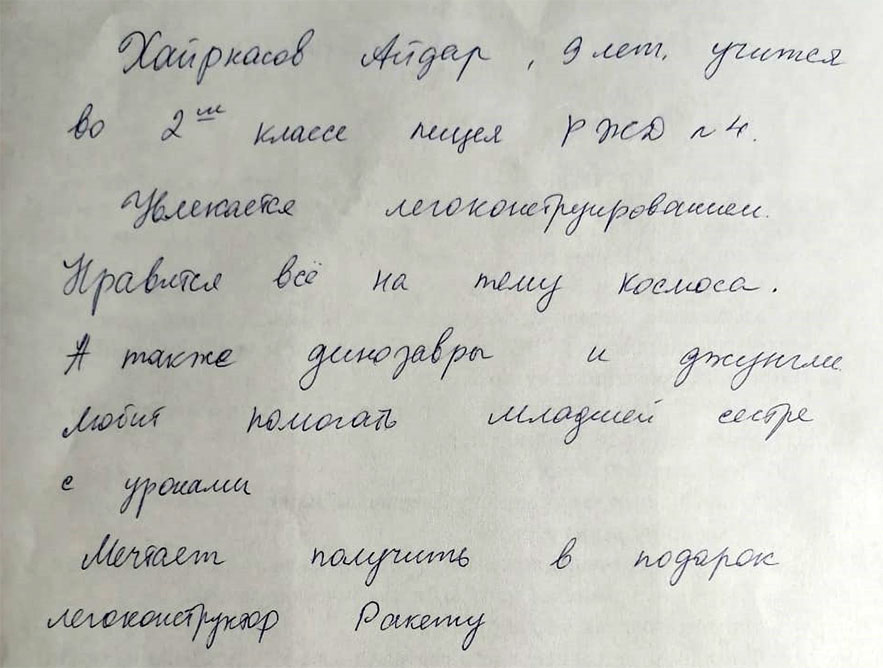 Хайркасов Айдар, 9 лет, учится
во 2ᵐ классе лицея РЖД №4.
Увлекается легоконструированием.
Нравится всё на тему космоса.
А также динозавры и джунгли.
Любит помогать младшей сестре
с уроками
Мечтает получить в подарок
легоконструктор Ракету